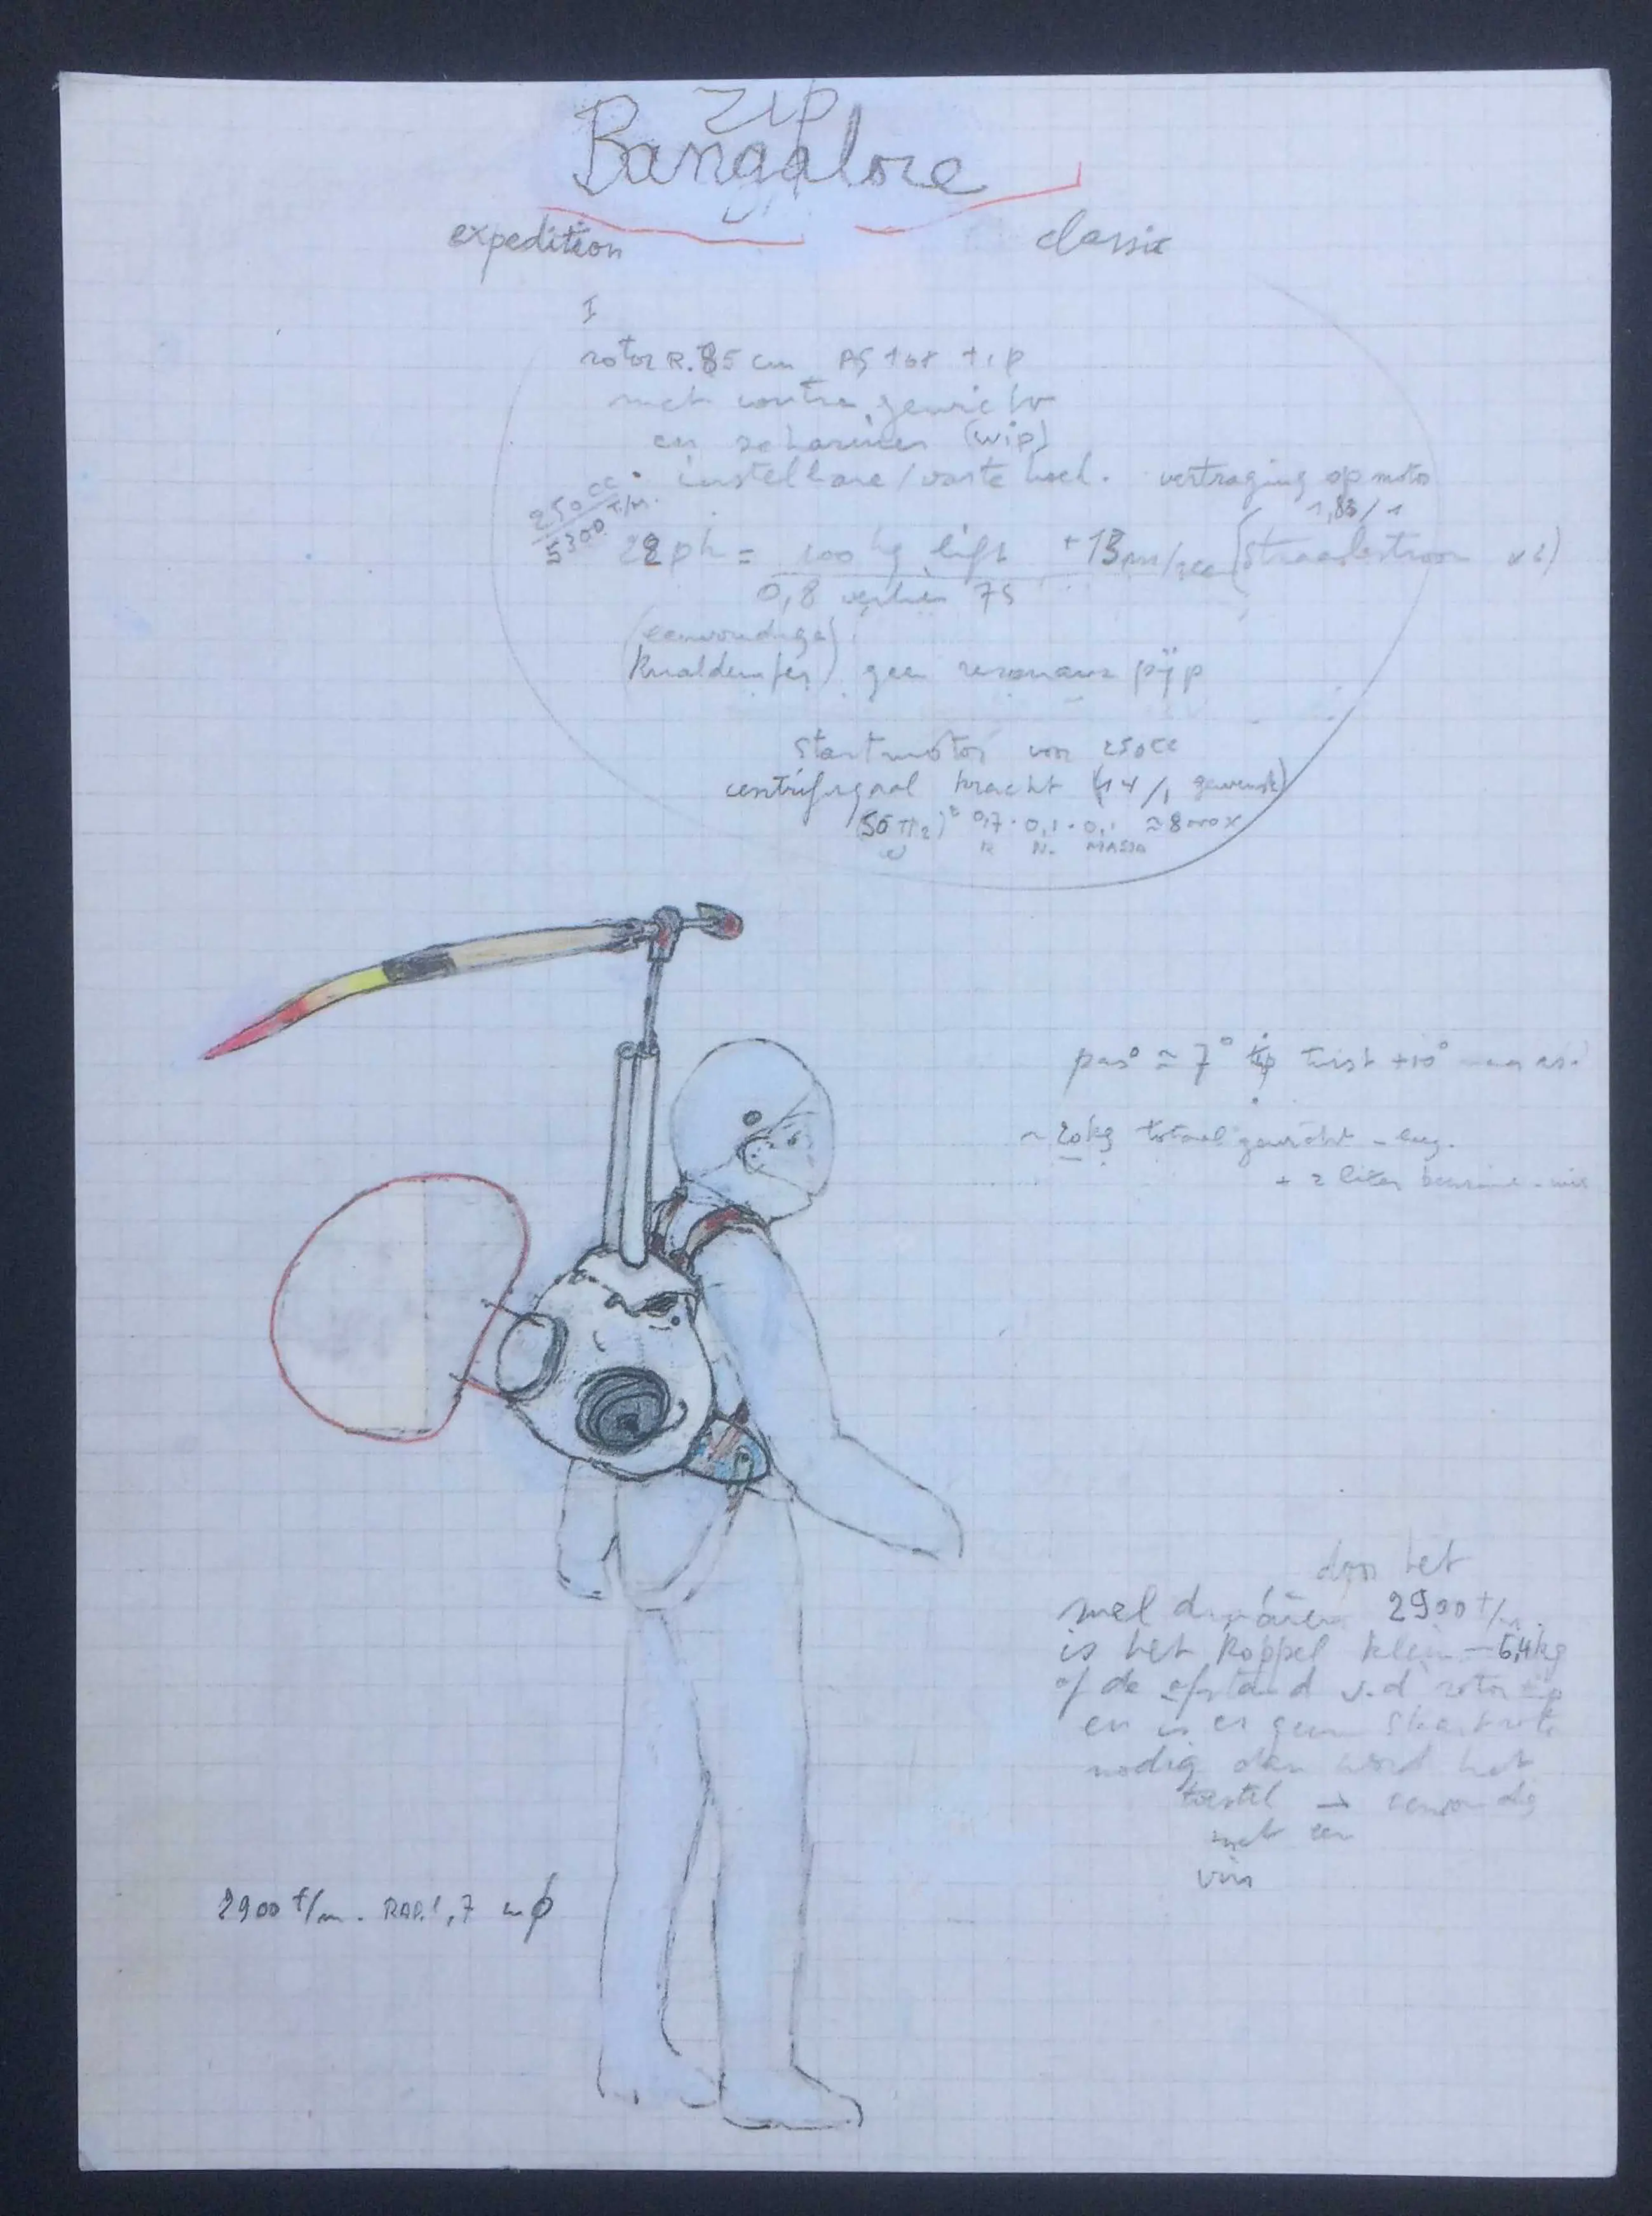 zip
Bangalore
expedition classic
I
rotor R. 85 cm tip
met contra gewicht
en scharnier (wip)
250cc
5300 T/M.
instelbare/vaste hoek. vertraging op moto
1,83/1
22 ph = 100 kg lift + 13 m/sec (straalstroom x2)
0,8 verlies 75
(eenvoudige)
(knaldemper) geen resonans pijp
Startmotor voor 250cc
centrifugaal kracht (14/1 gewenst)
(50 π 2)² 0,7 · 0,1 · 0,1 ≈ 8000 x
R N. MASSA
pas° ≈ 7° tip twist +10° naar as.
~ 20kg totaal gewicht - leeg.
+ 2 liter benzine - mix
dan het
snel 2900 t/m.
is het koppel klein - 5,4kg
of de afstand v.d rotor tip
en is er geen staartrotor
nodig dan word het
toestel → eenvoudig
met een
vin
2900 t/m. RAD. 1,7 m ϕ